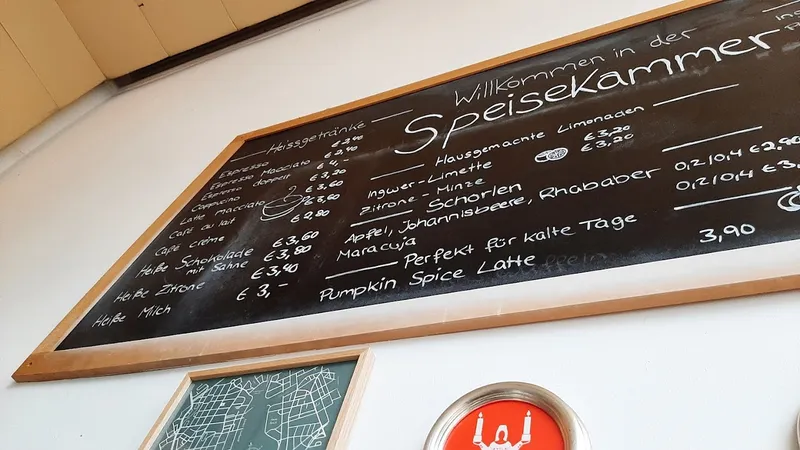 Willkommen in der
Speisekammer
Heissgetränke
Espresso € 2,40
Espresso Macciato € 2,40
Espresso doppelt € 4,-
Cappucino € 3,20
Latte Macciato € 3,60
Café au lait € 3,60
Café crème € 2,80
Heiße Schokolade € 3,60
mit Sahne € 3,80
Heiße Zitrone € 3,40
Heiße Milch € 3,-
Hausgemachte Limonaden
Ingwer-Limette € 3,20
Zitrone-Minze € 3,20
Schorlen
Apfel, Johannisbeere, Rhababer 0,2/0,4
Maracuja 0,2/0,4
Perfekt für kalte Tage
Pumpkin Spice Latte 3,90